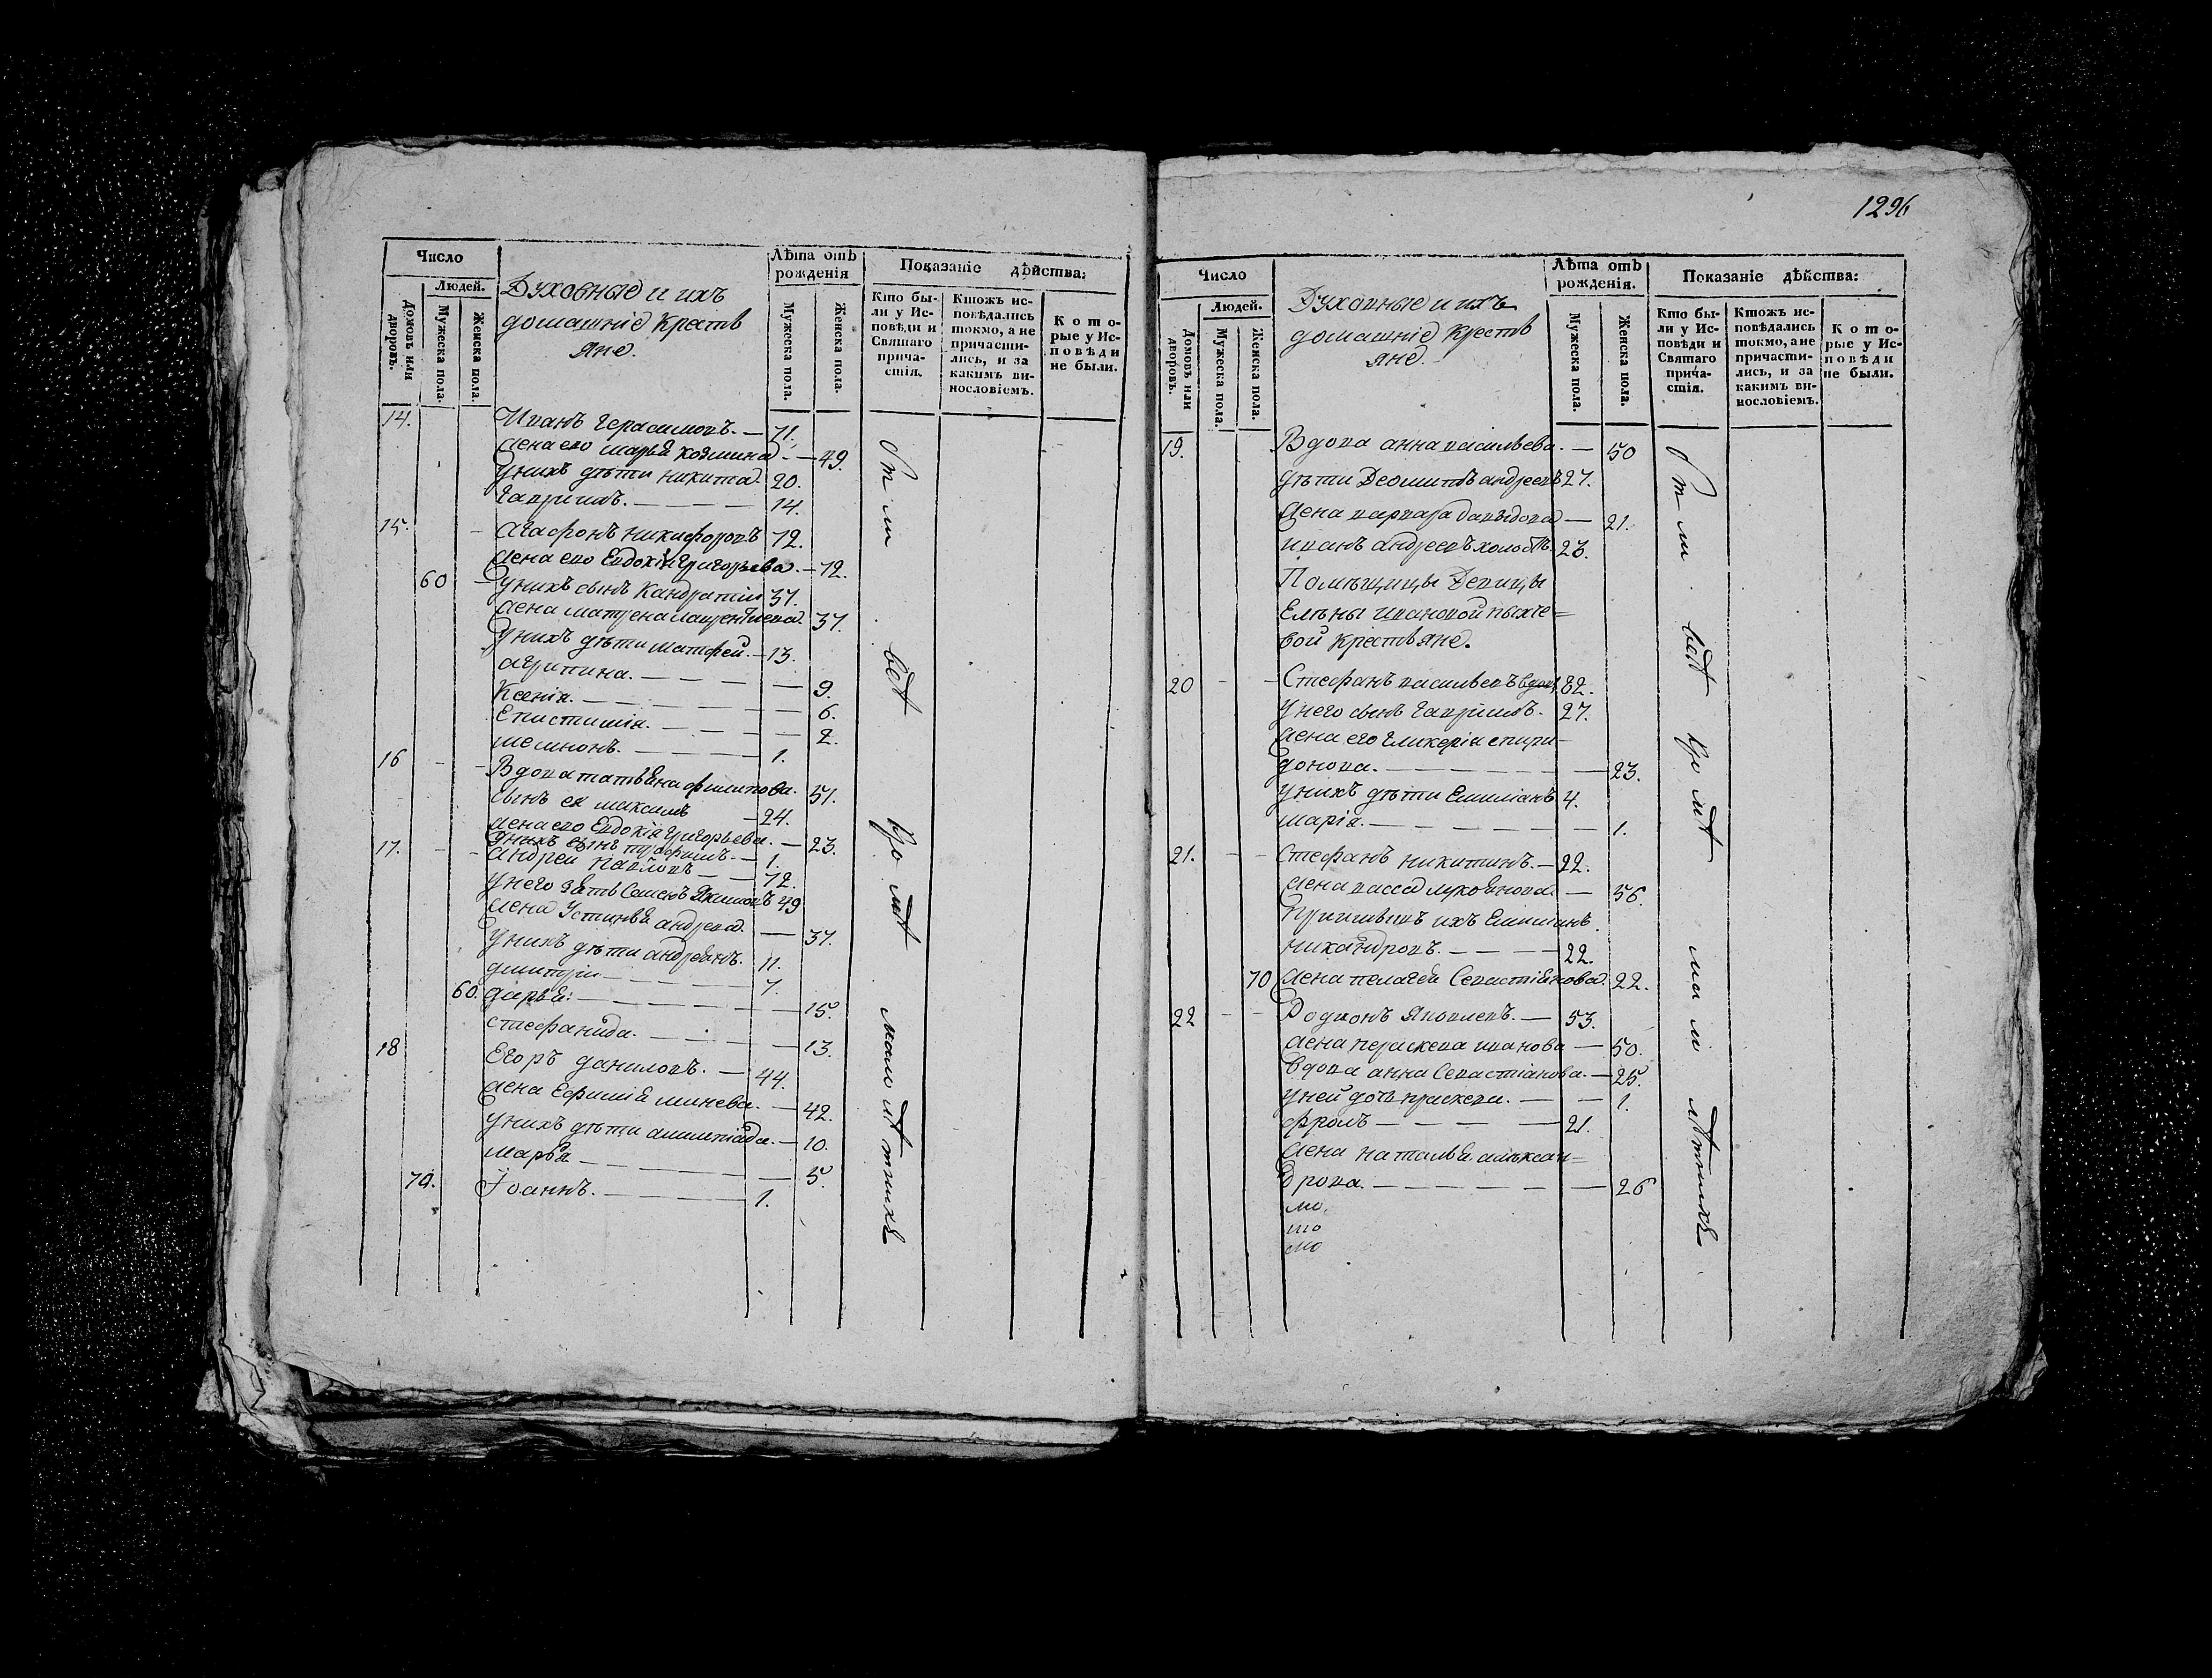 Число
Людей.
Домовъ или дворовъ.
Мужеска пола.
Женска пола.
Духовные и ихъ
домашніе Крестъ
яне.
Лѣта отъ
рожденія
Мужеска пола.
Женска пола.
Показаніе дѣйства:
Кто бы-
ли у Ис-
повѣди и
Святаго
прича-
стія.
Ктожъ ис-
повѣдались
токмо, а не
причасти-
лись, и за
какимъ ви-
нословіемъ.
Кото-
рые у Ис-
повѣди
не были.
14. Иванъ Герасимовъ. — 71.
Жена его Марья Козмина — 49.
У нихъ дѣти Никита 20.
Гавриилъ. — — — 14.
15. Агафонъ Никифоровъ 72.
Жена его Евдокія Григорьева. — 72.
60 У нихъ сынъ Кандратій 37.
Жена Матрена Лаврентиева 37.
У нихъ дѣти Матфей. — 13.
Агрипина. — — — 9.
Ксенія. — — — 6.
Епистимія. — — — 2.
1.
16 Вдова Татьяна Филипова. 51.
Сынъ ея Максимъ — 24.
Жена его Евдокія Григорьева. — 23.
У нихъ сынъ — 1.
17. Андрей Павловъ — — 72.
У него зять 49
Жена Устинья Андреева. — 37.
У нихъ дѣти Андреянъ. 11.
Димитрій — — — 7.
60. Дарья: — — — 15.
Стефанида. — — — 13.
18 Егоръ Даниловъ. — 44.
Жена Ефимія Минева. — 42.
У нихъ дѣти — 10.
Марья — — — 5.
70. Іоаннъ. — — — 1.
вст
кро мт
мало лтнихъ
1296
Число
Людей.
Домовъ или дворовъ.
Мужеска пола.
Женска пола.
Духовные и ихъ
домашніе Крестъ
яне.
Лѣта отъ
рожденія.
Мужеска пола.
Женска пола.
Показаніе дѣйства:
Кто бы-
ли у Ис-
повѣди и
Святаго
прича-
стія.
Ктожъ ис-
повѣдались
токмо, а не
причасти-
лись, и за
какимъ ви-
нословіемъ.
Кото-
рые у Ис-
повѣди
не были.
19. Вдова Анна Васильева. — 50
Дѣти Андреевъ 27.
Жена Варвара Давыдова — 21.
Иванъ Андреевъ холостъ. 23.
Помѣщицы Девицы
Елѣны Ивановой Пыхче=
вой Крестьяне.
20 Стефанъ Васильевъ вдовъ 82.
У него сынъ Гавриилъ. 27.
Жена его Гликерія Спири-
донова. — — — 23.
У нихъ дѣти Емиліанъ 4.
Марія. — — — 1.
21. Стефанъ Никитинъ. — 22.
Жена Васса Лукоянова. — 56.
ихъ Емилианъ
Никандровъ. — — 22.
70 Жена Пелагея Севастіянова. 22.
22 Родионъ Яковлевъ. — 53.
Жена Параскева Иванова — 50.
Вдова Анна Севастіанова. — 25.
У ней дочь Праскева. — — 1.
Фролъ — — — 21.
Жена Наталья Алѣксан=
дрова. — — — 26
мо
мо
вст
кро мт
лтнихъ